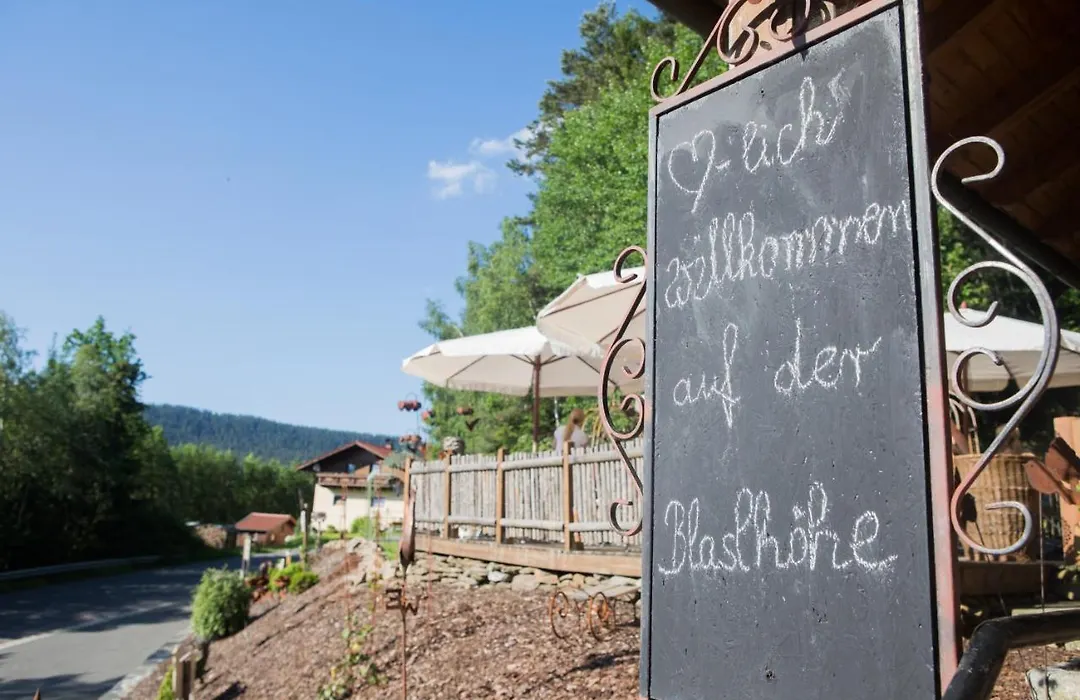 ♡-lich
willkommen
auf der
Blashöhe